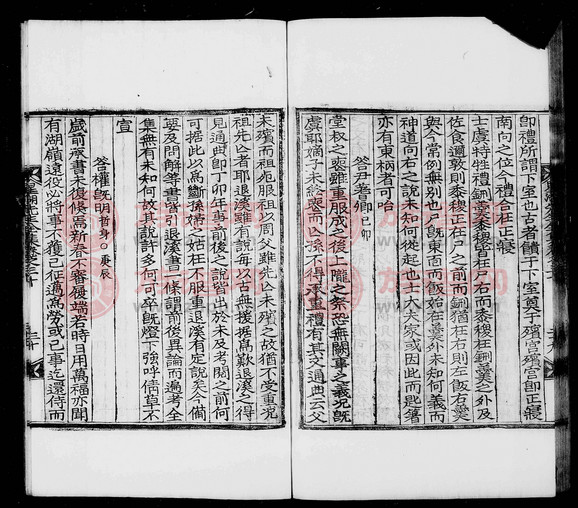 卽禮所謂下室也古者饋于下室奠于殯宮殯宮卽正寢
南向之位今禮合在正寢
士虞特牲禮鉶羹黍稷皆在戶右而黍稷在鉶羹之外及
佐食邇敦則黍稷在戶之前而鉶猶在右則左飯右羹
與今常例無別也尸旣東面而飯始在羹外未知何義而
神道向右之說未知何從起也士大夫家或因此而匙箸
亦有東柄者可哈
答尹君卿己卯
堂叔之喪雖重服成之後上隴之祭恐無闕事之義況旣
虞耶嫡子未終喪而亡孫不得承重禮有其文通典云父
未殯而祖亡服祖以周父雖先亡未殯之故猶不受重況
祖先亡者耶退溪雖有說每以古無援據爲歎退溪之得
見通典卽丁卯年事前說皆出於未及考閱之前何
可據此以爲斷孫婦之姑在不服重退溪有定說矣今備
要及問解等書皆引退溪書一條謂前後異論而遍考全
集無有未知何故其說許多何可卒旣燈下強呼倩草不
宣
答權旣明哲身○庚辰
歲前承書未復倏爲新春不審履端若時日用萬福亦聞
有湖嶺遠役必將事不獲已征邁爲勞或已事迄還侍而